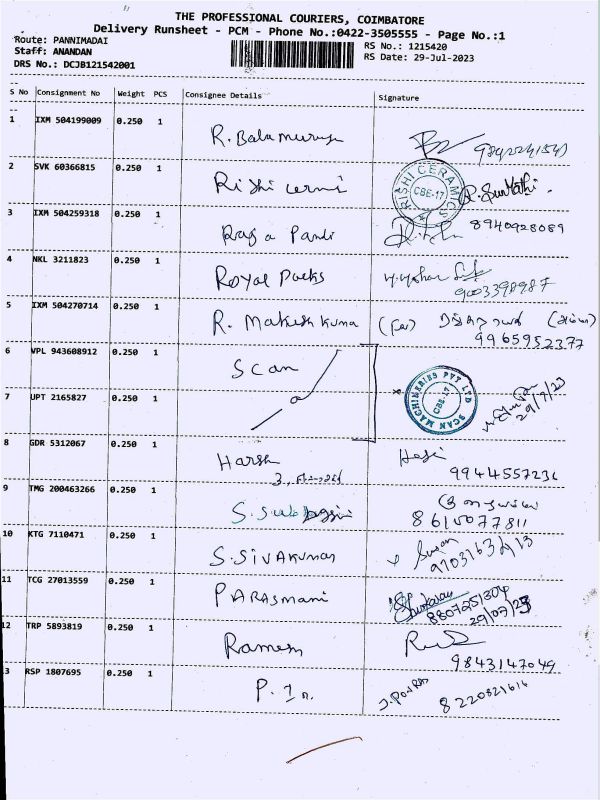 THE PROFESSIONAL COURIERS, COIMBATORE
Delivery Runsheet - PCM - Phone No.:0422-3505555 - Page No.:1
Route: PANNIMADAI
Staff: ANANDAN
DRS No.: DCJB121542001
RS No.: 1215420
RS Date: 29-Jul-2023
S No Consignment No Weight PCS Consignee Details Signature
1 IXM 504199009 0.250 1 R. Balamurugan
2 SVK 60366815 0.250 1 Rishi RISHI CERAMICS CBE-17
3 IXM 504259318 0.250 1 Raja 8940928089
4 NKL 3211823 0.250 1 Royal Packs 9003390987
5 IXM 504270714 0.250 1 R. Makesh Kuma (for)
9965952377
6 VPL 943608912 0.250 1 Scan SCAN MACHINERIES PVT LTD CBE-17
7 UPT 2165827 0.250 1 29/7/23
8 GDR 5312067 0.250 1 Harsh
9944557236
9 TMG 200463266 0.250 1 S.
8610077811
10 KTG 7110471 0.250 1 S. SIVAKUMAR
11 TCG 27013559 0.250 1 PARASMANI
8807251304
29/07/23
12 TRP 5893819 0.250 1 Ramesh
9843147049
3 RSP 1807695 0.250 1 P. 8220821614